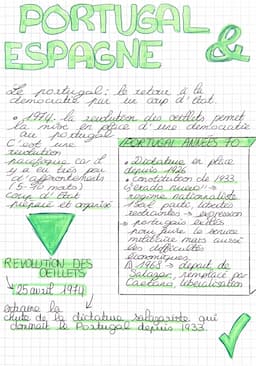 PORTUGAL &
ESPAGNE
Le portugal : le retour à la
démocratie par un coup d'état.
• 1974 : la révolution des oeillets permet
la mise en place d'une démocratie
au portugal
C'est une
révolution
pacifique car il
y a eu très peu
d'affrontements
(5-90 morts)
coup d'état
préparé et organisé
PORTUGAL ANNÉES 70
• Dictature en place
depuis 1926
• constitution de 1933
régime nationaliste
libertés
restraintes → expression
→ portugais exilés
pour fuire le service
militaire mais aussi
les difficultés
économiques
→ 1968 → départ de
Salazar, remplacé par
Caetano, libéralisation
RÉVOLUTION DES
OEILLETS
→ 25 avril 1974
entraine la
chute de la dictature salazariste qui
dominait le Portugal depuis 1933.